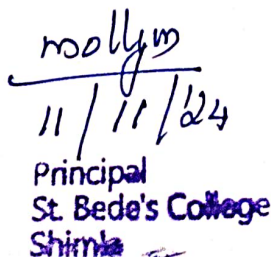 mollym
11/11/'24
Principal
St. Bede's College
Shimla